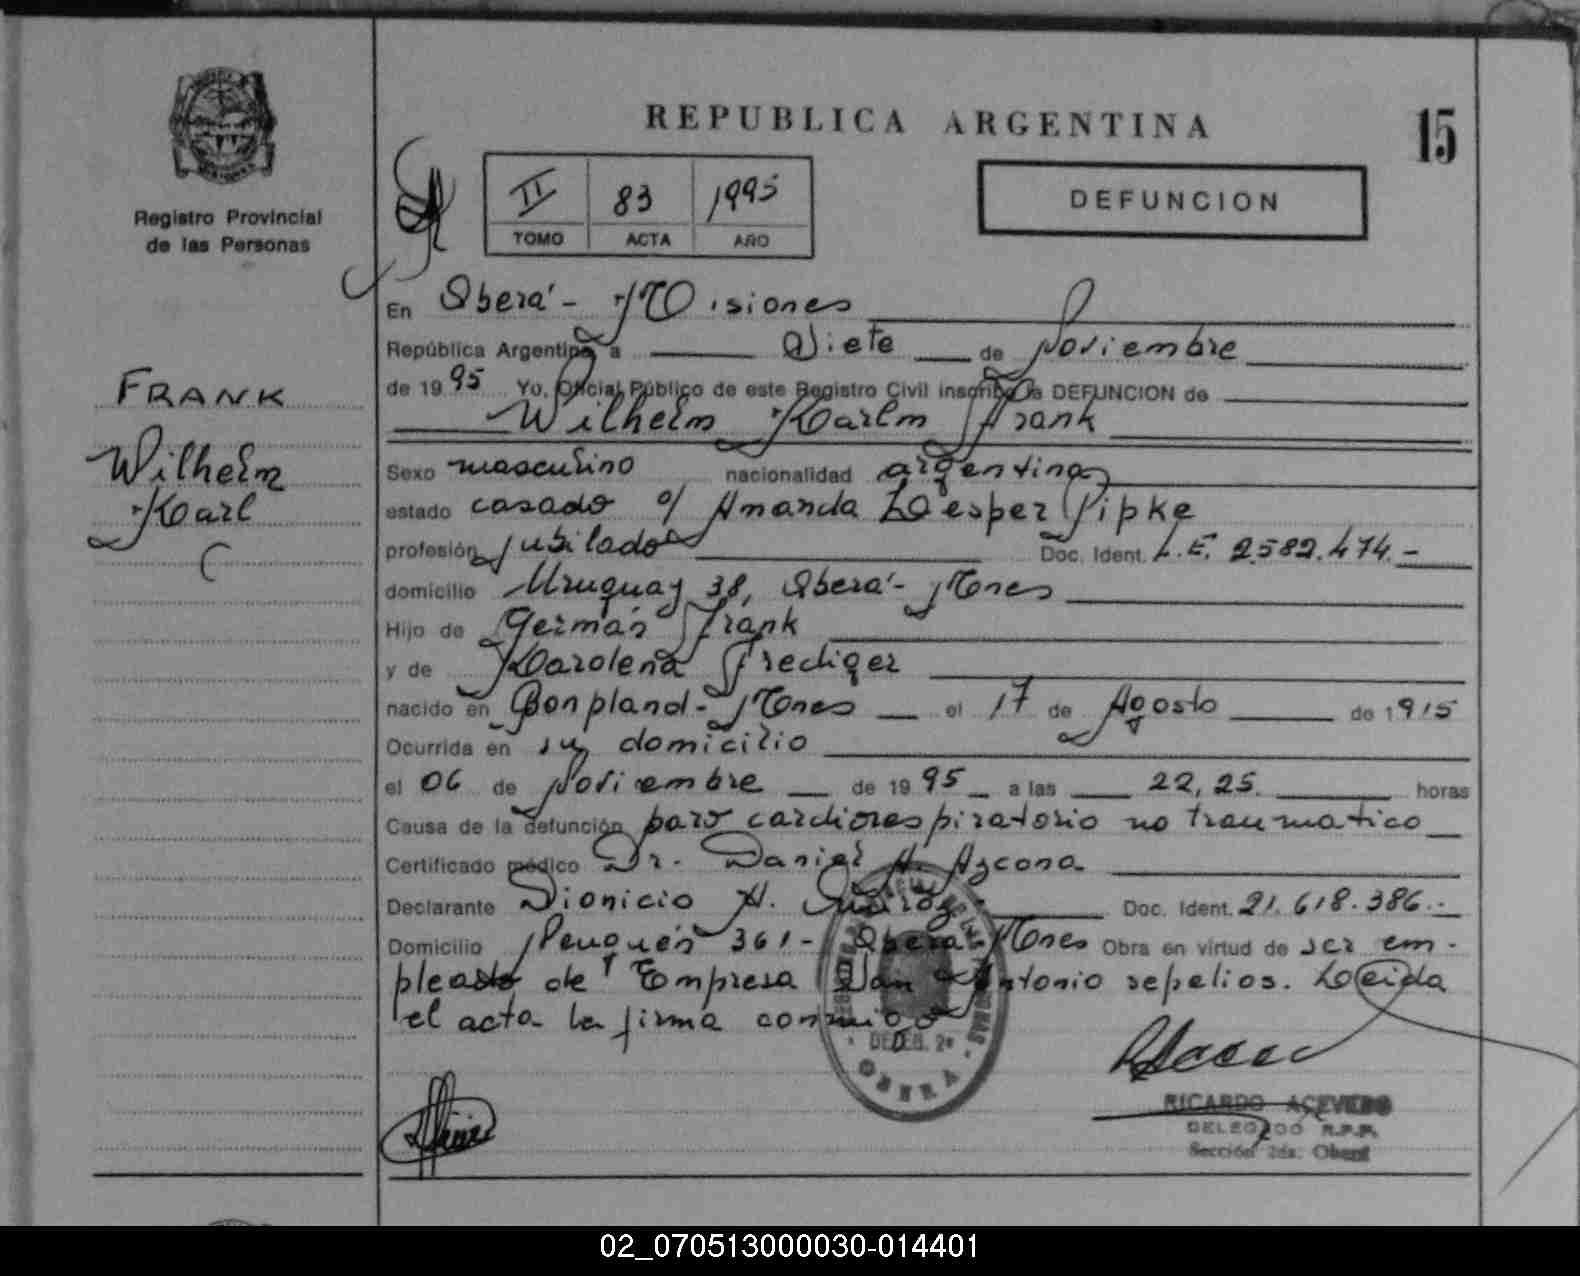 REPUBLICA ARGENTINA
15
Registro Provincial
de las Personas
II 83 1995
TOMO ACTA AÑO
DEFUNCION
FRANK
Wilhelm
Karl
En Oberá - Misiones
República Argentina a Siete de Noviembre
de 1995 Yo, Oficial Público de este Registro Civil inscribo la DEFUNCION de
Wilhelm Karlm Frank
Sexo masculino nacionalidad argentina
estado casado c/ Amanda Lesper Pipke
profesión jubilado Doc. Ident. L.E. 2.582.474.-
domicilio Uruguay 38, Oberá - Mnes
Hijo de Germán Frank
y de Karolena Frediger
nacido en Bonpland - Mnes el 17 de Agosto de 1915
Ocurrida en su domicilio
el 06 de Noviembre de 1995 a las 22,25. horas
Causa de la defunción paro cardiorespiratorio no traumatico
Certificado médico Dr. Daniel A. Azcona
Declarante Dionicio A. Doc. Ident. 21.618.386.-
Domicilio 361 - Oberá - Mnes Obra en virtud de ser em-
pleado de Empresa San Antonio sepelios. Leeida
el acta la firma conmigo
DELEG. 2ª
OBERA
RICARDO ACEVEDO
DELEGADO R.P.P.
Sección 2da. Oberá
02_070513000030-014401